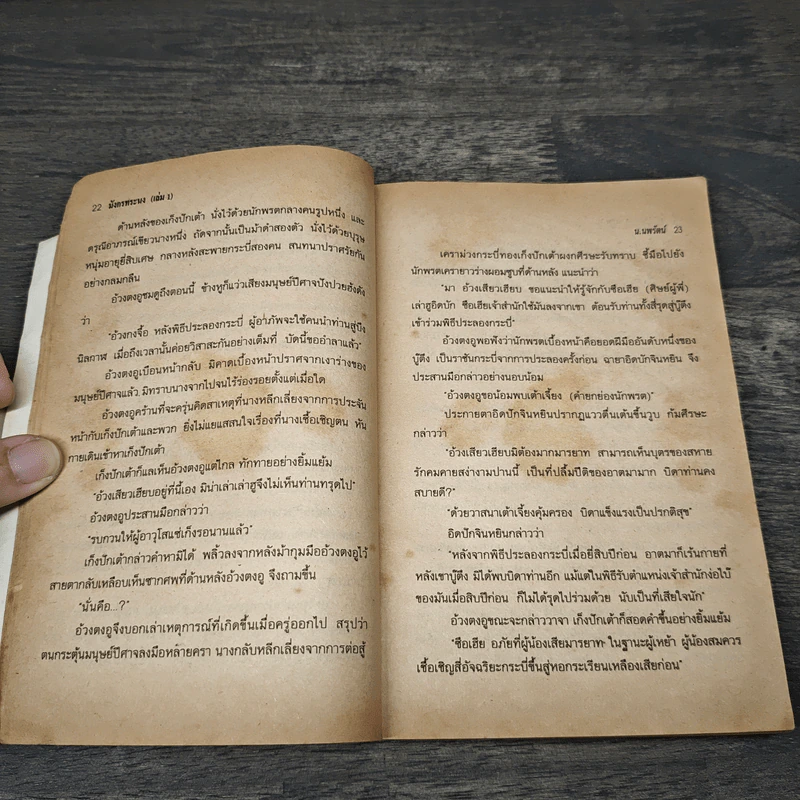 22 มังกรทระนง (เล่ม 1)
ด้านหลังของเก็งปักเต้า นั่งไว้ด้วยนักพรตกลางคนรูปหนึ่ง และ
ดรุณีอาภรณ์เขียวนางหนึ่ง ถัดจากนั้นเป็นม้าดำสองตัว นั่งไว้ด้วยบุรุษ
หนุ่มอายุยี่สิบเศษ กลางหลังสะพายกระบี่สองคน สนทนาปราศรัยกัน
อย่างกลมกลืน
อ้วงตงอูชมดูถึงตอนนี้ ข้างหูก็แว่วเสียงมนุษย์ปีศาจปังปวยฮังดัง
ว่า
"อ้วงกงจื้อ หลังพิธีประลองกระบี่ ผู้อาภัพจะใช้คนนำท่านสู่บึง
นิลกาฬ เมื่อถึงเวลานั้นค่อยวิสาสะกันอย่างเต็มที่ บัดนี้ขออำลาแล้ว"
อ้วงตงอูเบือนหน้ากลับ มิคาดเบื้องหน้าปราศจากเงาร่างของ
มนุษย์ปีศาจแล้ว มิทราบนางจากไปจนไร้ร่องรอยตั้งแต่เมื่อใด
อ้วงตงอูคร้านที่จะครุ่นคิดสาเหตุที่นางหลีกเลี่ยงจากการประจัน
หน้ากับเก็งปักเต้าและพวก ยิ่งไม่แยแสสนใจเรื่องที่นางเชื้อเชิญตน หัน
กายเดินเข้าหาเก็งปักเต้า
เก็งปักเต้าก็แลเห็นอ้วงตงอูแต่ไกล ทักทายอย่างยิ้มแย้ม
"อ้วงเสียวเฮียบอยู่ที่นี้เอง มิน่าเล่าเล่าฮูจึงไม่เห็นท่านทรุดไป"
อ้วงตงอูประสานมือกล่าวว่า
"รบกวนให้ผู้อาวุโสแซ่เก็งรอนานแล้ว"
เก็งปักเต้ากล่าวคำหามิได้ พลิ้วลงจากหลังม้ากุมมืออ้วงตงอูไว้
สายตากลับเหลือบเห็นซากศพที่ด้านหลังอ้วงตงอู จึงถามขึ้น
"นั่นคือ...?"
อ้วงตงอูจึงบอกเล่าเหตุการณ์ที่เกิดขึ้นเมื่อครู่ออกไป สรุปว่า
ตนกระตุ้นมนุษย์ปีศาจลงมือหลายครา นางกลับหลีกเลี่ยงจากการต่อสู้
น.นพรัตน์ 23
เคราม่วงกระบี่ทองเก็งปักเต้าผงกศีรษะรับทราบ ชี้มือไปยัง
นักพรตเครายาวร่างผอมซูบที่ด้านหลัง แนะนำว่า
"มา อ้วงเสียวเฮียบ ขอแนะนำให้รู้จักกับซือเฮีย (ศิษย์ผู้พี่)
เล่าฮูอิดบัก ซือเฮียเจ้าสำนักใช้มันลงจากเขา ต้อนรับท่านทั้งสี่รุดสู่บู๊ตึง
เข้าร่วมพิธีประลองกระบี่"
อ้วงตงอูพอฟังว่านักพรตเบื้องหน้าคือยอดฝีมืออันดับหนึ่งของ
บู๊ตึง เป็นราชันกระบี่จากการประลองครั้งก่อน ฉายาอิดบักจินหยิน จึง
ประสานมือกล่าวอย่างนอบน้อม
"อ้วงตงอูขอน้อมพบเต้าเจี้ยง (คำยกย่องนักพรต)"
ประกายตาอิดบักจินหยินปรากฏแววตื่นเต้นขึ้นวูบ ก้มศีรษะ
กล่าวว่า
"อ้วงเสียวเฮียบมิต้องมากมารยาท สามารถเห็นบุตรของสหาย
รักคมคายสง่างามปานนี้ เป็นที่ปลื้มปีติของอาตมามาก บิดาท่านคง
สบายดี?"
"ด้วยวาสนาเต้าเจี้ยงคุ้มครอง บิดาแข็งแรงเป็นปรกติสุข"
อิดบักจินหยินกล่าวว่า
"หลังจากพิธีประลองกระบี่เมื่อยี่สิบปีก่อน อาตมาก็เร้นกายที่
หลังเขาบู๊ตึง มิได้พบบิดาท่านอีก แม้แต่ในพิธีรับตำแหน่งเจ้าสำนักง่อไบ๊
ของมันเมื่อสิบปีก่อน ก็ไม่ได้รุดไปร่วมด้วย นับเป็นที่เสียใจนัก"
อ้วงตงอูขณะจะกล่าววาจา เก็งปักเต้าก็สอดคำขึ้นอย่างยิ้มแย้ม
"ซือเฮีย อภัยที่ผู้น้องเสียมารยาท ในฐานะผู้เหย้า ผู้น้องสมควร
เชื้อเชิญสี่อัจฉริยะกระบี่ขึ้นสู่หอกระเรียนเหลืองเสียก่อน"